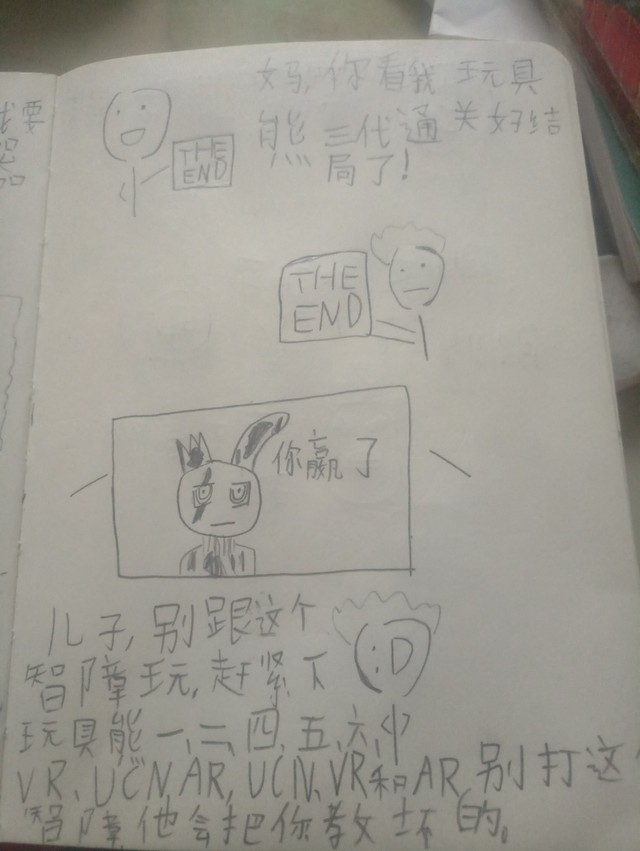 我要
器
妈,你看我玩具
熊三代通关好结
局了!
THE
END
THE
END
你赢了
儿子,别跟这个
智障玩,赶紧下
:D
玩具能一、二、四、五、六、
VR、UCN、AR,UCN、VR和AR,别打这
智障他会把你教坏的。